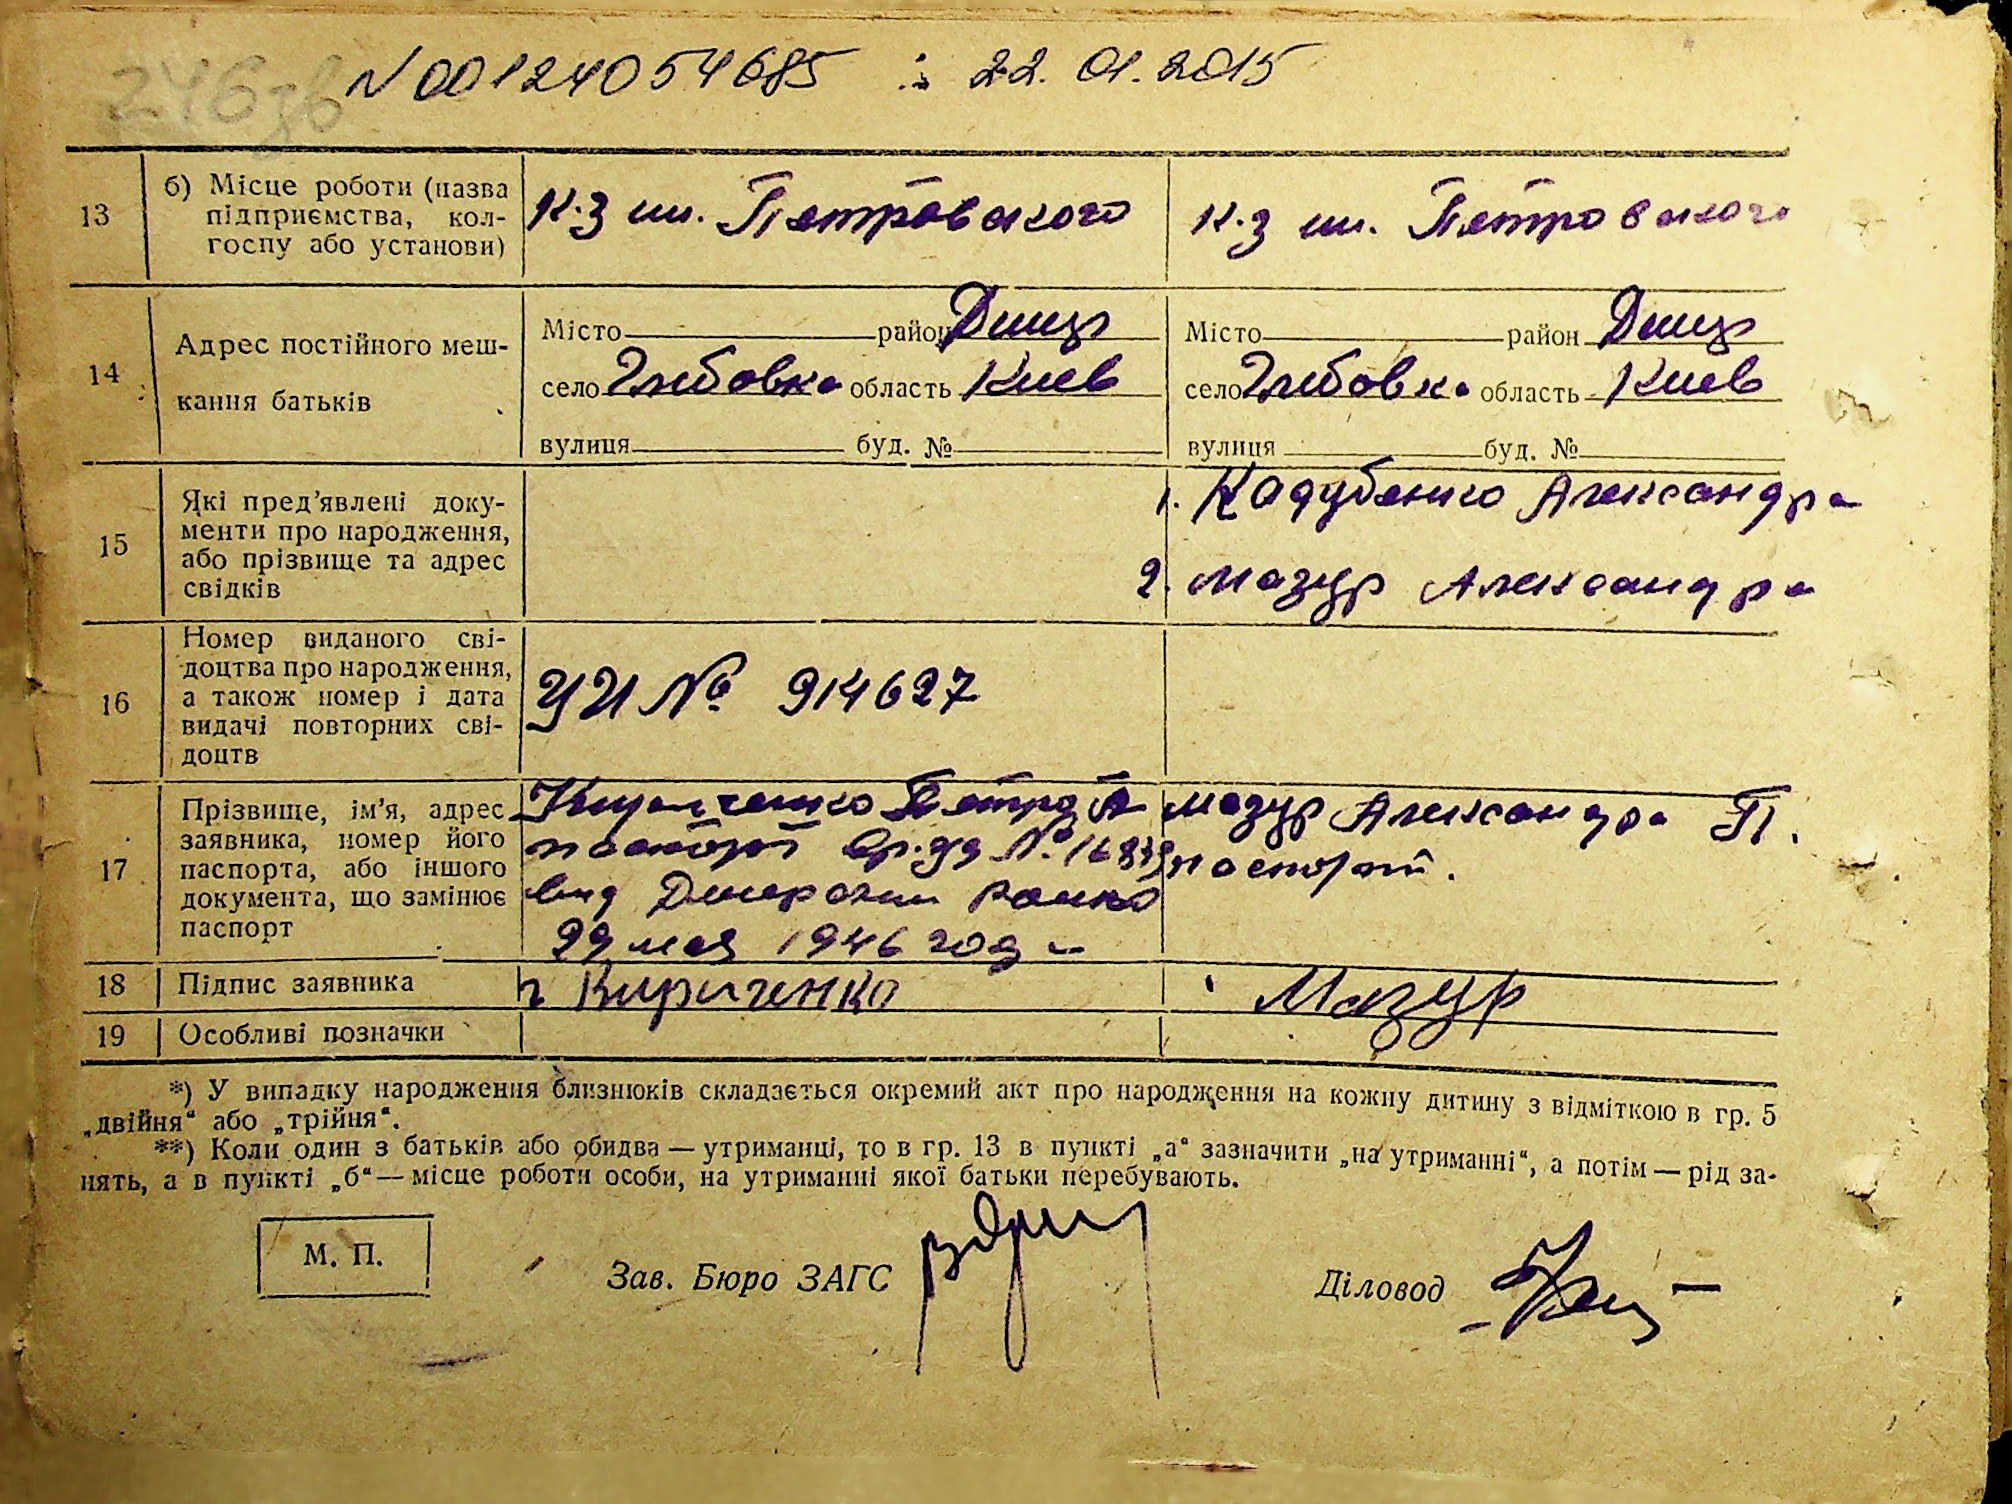 246зв
N 00124054685 : 22.01.2015
13
б) Місце роботи (назва
підприємства, кол-
госпу або установи)
К-з им. Петровского
К-з им. Петровского
14
Адрес постійного меш-
кання батьків
Місто район Димер
село Глебовка область Киев
вулиця буд. №
Місто район Димер
село Глебовка область Киев
вулиця буд. №
15
Які пред'явлені доку-
менти про народження,
або прізвище та адрес
свідків
1. Кадубенко Александра
2. Мазур Александра
16
Номер виданого сві-
доцтва про народження,
а також номер і дата
видачі повторних сві-
доцтв
УИ № 914627
17
Прізвище, ім'я, адрес
заявника, номер його
паспорта, або іншого
документа, що замінює
паспорт
Кириченко Петро А
паспорт №
выд Димерским
29 мая 1946 года
Мазур Александра П.
паспорт.
18
Підпис заявника
Кириченко
Мазур
19
Особливі позначки
*) У випадку народження близнюків складається окремий акт про народження на кожну дитину з відміткою в гр. 5
„двійня“ або „трійня“.
**) Коли один з батьків або обидва — утриманці, то в гр. 13 в пункті „а“ зазначити „на утриманні“, а потім — рід за-
нять, а в пункті „б“ — місце роботи особи, на утриманні якої батьки перебувають.
М. П.
Зав. Бюро ЗАГС
Діловод